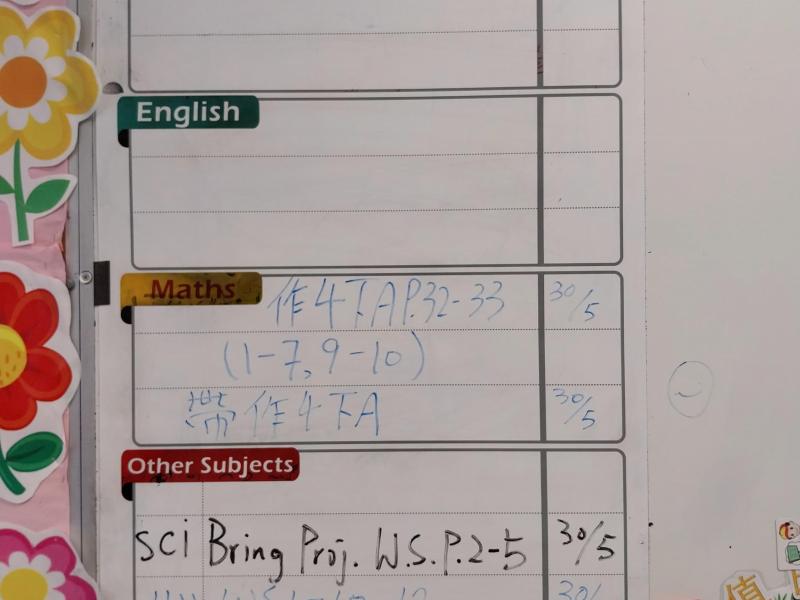 English
Maths
作4下A P.32-33 30/5
(1-7, 9-10)
帶作4下A 30/5
Other Subjects
SCI Bring Proj. W.S. P.2-5 30/5
30/
值